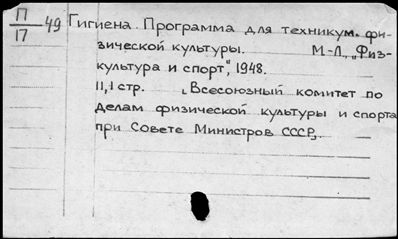 П/17 49 Гигиена. Программа для техникум. фи-
зической культуры. М-Л., „Физ-
культура и спорт", 1948.
11,1 стр. (Всесоюзный комитет по
делам физической культуры и спорта
при Совете Министров СССР).